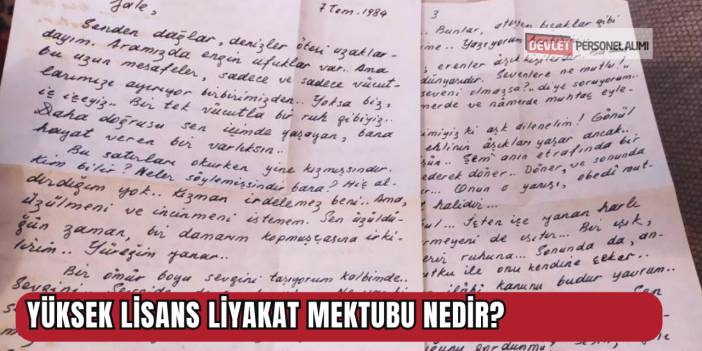 Jale,
7 Tem. 1984
Senden dağlar, denizler ötesi uzaklar-
dayım. Aramızda engin ufuklar var.. Ama
bu uzun mesafeler, sadece ve sadece vücut-
larımızı ayırıyor birbirimizden.. Yoksa biz,
iç içeyiz.. Bir tek vücutla bir ruh gibiyiz..
Daha doğrusu sen içimde yaşayan, bana
hayat veren bir varlıksın..
Bu satırları okurken yine kızmışsındır.
Kim bilir? Neler söylemişsindir bana? Hiç al-
dırdığım yok.. Kızman irdelemez beni.. Ama,
üzülmeni ve incinmeni istemem. Sen üzüldü-
ğün zaman, bir damarım kopmuşçasına irki-
lirim.. Yüreğim yanar..
Bir ömür boyu sevgini taşıyorum kalbimde..
3
Bunlar, ateşten bıçaklar gibi
Yazıyorum
erenler
dünyasıdır. Sevenlere ne mutlu!..
seveni olmazsa?.. diye soruyorum..
merde ve namerde muhtaç eyle-
ki aşk dilenelim! Gönül
ehlinin âşıkları yaşar ancak..
Şem'anın etrafında bir
ederek döner.. Döner, ve sonunda
Onun o yanışı, ebedî mut-
halidir...
İçten içe yanan harlı
de ısıtır... Bir ışık,
ruhuna... Sonunda da, an-
tutku ile onu kendine çeker..
ilâhi kanunu budur yavrum..
Sen
DEVLET PERSONELALIMI
YÜKSEK LİSANS LİYAKAT MEKTUBU NEDİR?